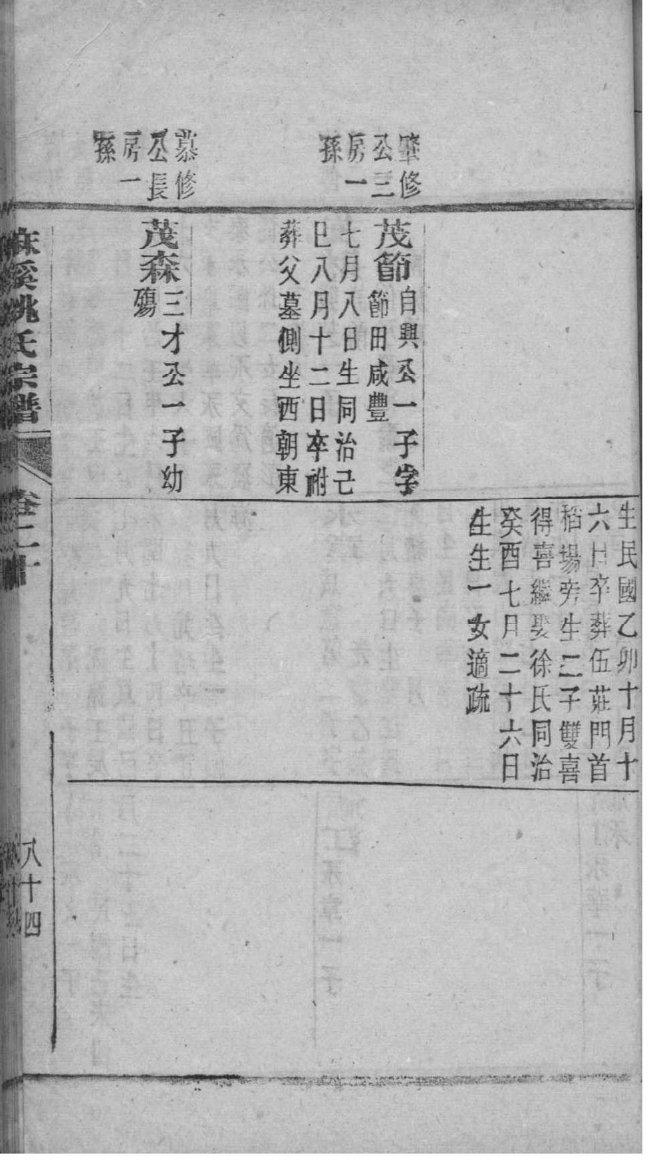 肇修
公三
房一
孫
茂節自與公一子字
節田咸豐
七月八日生同治己
巳八月十二日卒祔
葬父墓側坐西朝東
慕修
公長
房一
孫
茂森三才公一子幼
殤
生民國乙卯十月十
六日卒葬伍莊門首
稻場旁生二子雙喜
得喜繼娶徐氏同治
癸酉七月二十六日
生生一女適疏
麻溪姚氏宗譜
卷二十
八十四